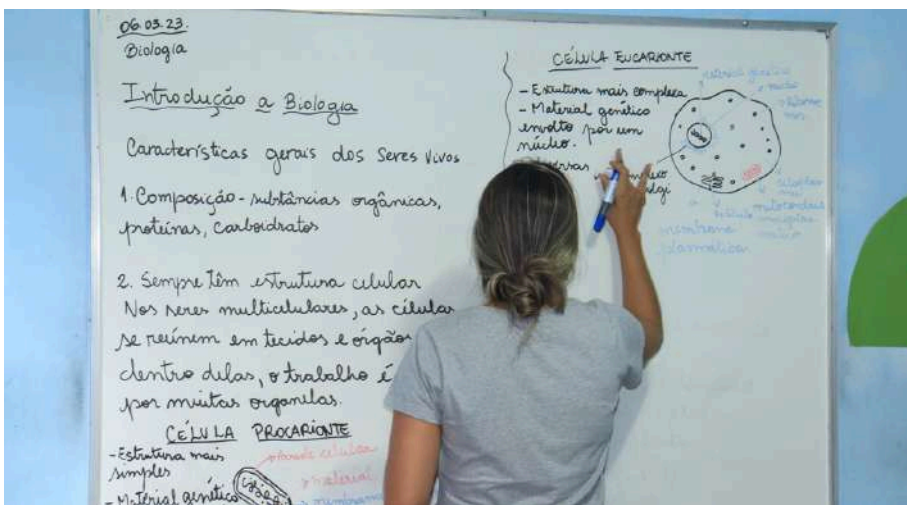 06.03.23.
Biologia
Introdução a Biologia
Características gerais dos Seres Vivos
1. Composição - substâncias orgânicas,
proteínas, carboidratos
2. Sempre têm estrutura celular
Nos seres multicelulares, as células
se reúnem em tecidos e órgãos
dentro delas, o trabalho é
por muitas organelas.
CÉLULA PROCARIONTE
- Estrutura mais
simples
- Material genético
parede celular
material
membrana
CÉLULA EUCARIONTE
- Estrutura mais complexa
- Material genético
envolto por um
núcleo.
material genético
núcleo
membrana
plasmática